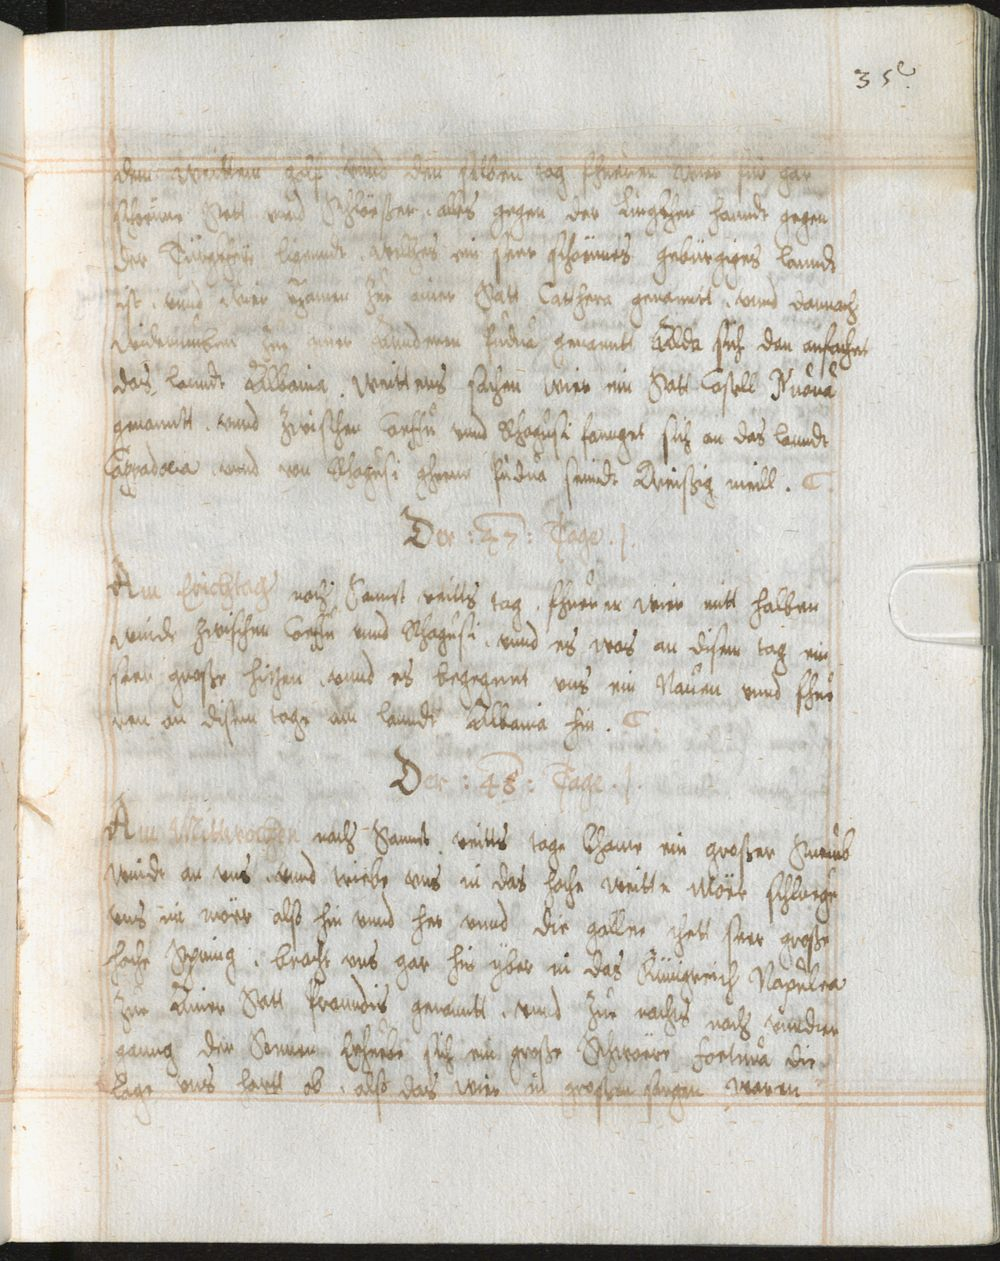 35
dem weitten golf vnnd den selben tag fhueren wier für gar
schoenne Stett vnnd Schlösser, alles gegen der Linckhen hanndt gegen
der Türggeÿ ligenndt, welches ein seer schoennes gebürgiges lanndt
ist, vnnd wier khamen zu einer Statt Catthera genanntt, vnnd darnach
widerumben zu einer annderen Pudua genanntt Allda sich dan anfachet
das lanndt Albania, weitters sachen wier ein Statt Castell Nuoua
genanntt, vnnd Zwischen Corffu vnnd Rhagusi fannget sich an das lanndt
Cappadocia, vnnd von Rhagusi ghenn Pudua seindt Dreissig meill.
Der : 47 : Tage .
Am Erichtag nach Sannt veitts tag, fhueren wier mitt halben
winde Zwischen Corffu vnnd Rhagusi, vnnd es was an disem tag ein
seer grosse hitzen, vnnd es begegnet vns ein Nauen vnnd fhue
ren an disem tage am lanndt Albania hin.
Der : 48 : Tage .
Am Mittwochen nach Sannt veitts tage khame ein grosser
winde an vns, vnnd triebe vns in das hoche weitte Mör schluege
vns im mör alss hin vnnd her vnnd die gallee thett seer grosse
hoche Spring, bracht vns gar hin yber in das Künigreich Napulea
zu einer Statt Prandis genanntt, vnnd zu nachts nach vnnder
ganng der Sonnen Erhuebe sich ein grosse Schwere Fortuna die
lage vns hartt ob, alss das wier in grossen sorgen waren